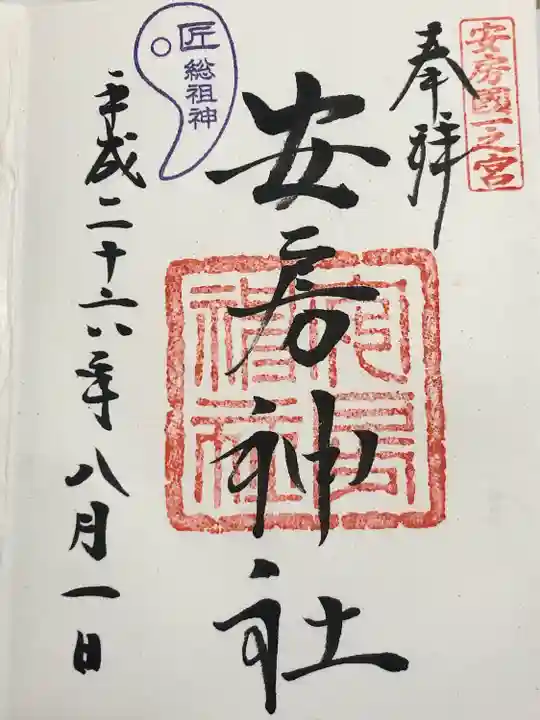 安房國一之宮
奉拝
安房神社
匠
総祖神
平成二十六年八月一日